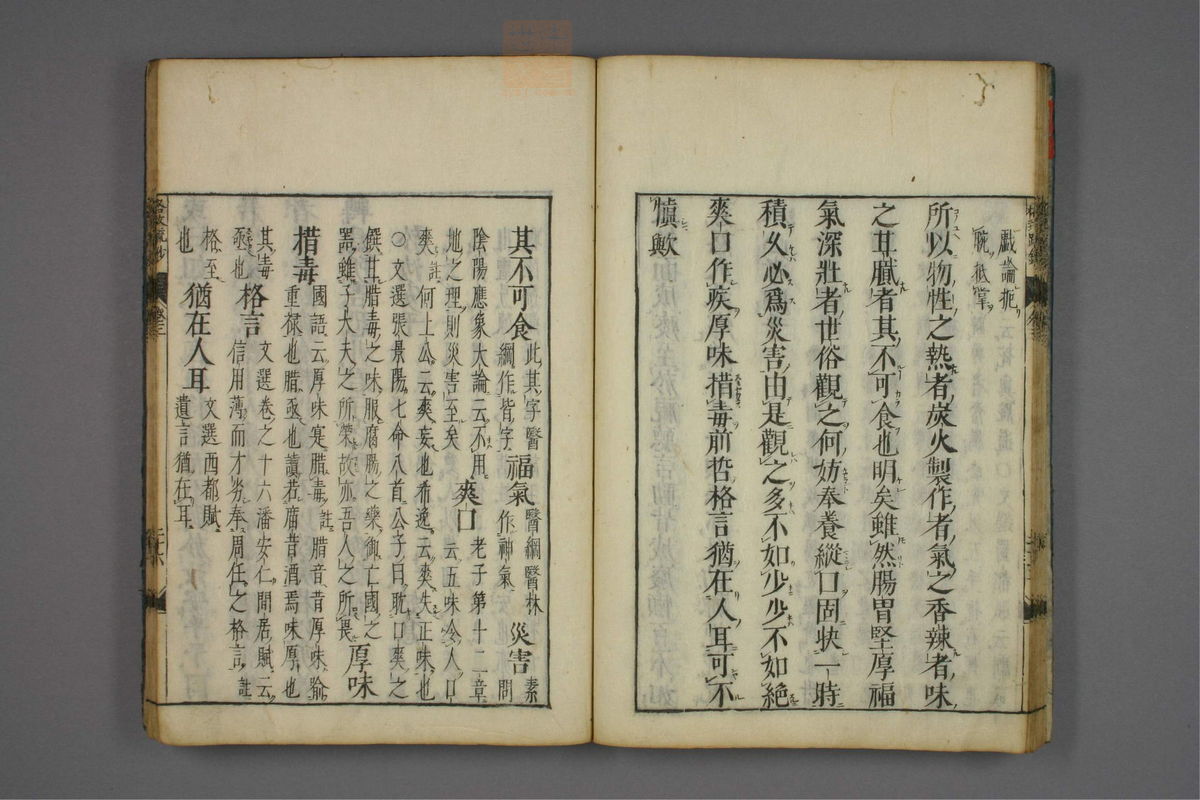 戲論扼
腕抵掌
所以物性之熱者炭火製作者氣之香辣者味
之甘膩者其不可食也明矣雖然腸胃堅厚福
氣深壯者世俗觀之何妨奉養縱口固快一時
積久必爲災害由是觀之多不如少少不如絶
爽口作疾厚味措毒前哲格言猶在人耳可不
愼歟
其不可食 此其字醫綱作皆字 福氣 醫綱醫林作神氣 災害 素問
陰陽應象大論云不用
地之理則災害至矣 爽口 老子第十二章云五味令人口
爽註何上公云爽妄也希逸云爽失正味也
○文選張景陽七命八首公子曰耽口爽之
饌甘腊毒之味服腐腸之藥御亡國之
器雖子大夫之所榮故亦吾人之所畏 厚味
措毒 國語云厚味寔腊毒註腊音昔厚味喩重祿也腊亟也讀若廇昔酒焉味厚也
其毒亟也 格言 文選卷之十六潘安仁間居賦云信用薄而才劣奉周任之格言註
格至也 猶在人耳 文選西都賦遺言猶在耳